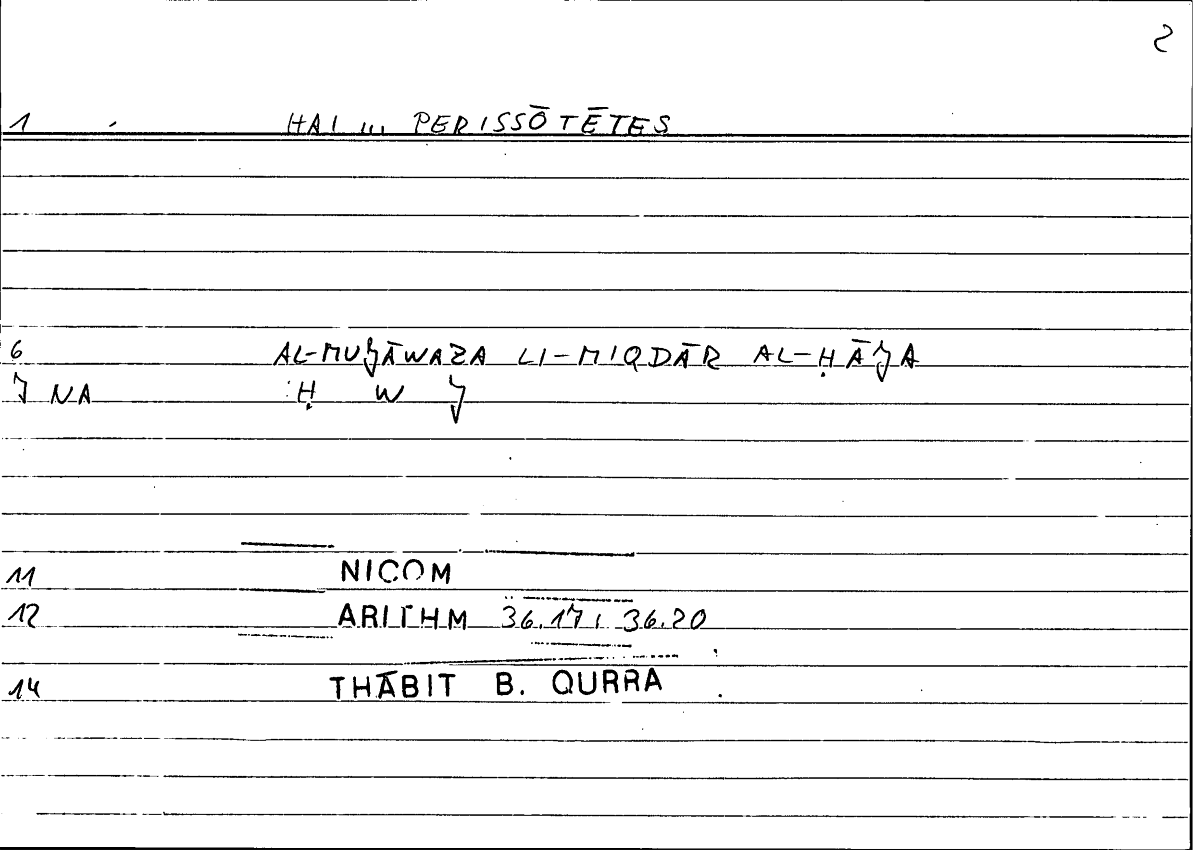 2
1 HAI ... PERISSŌTĒTES
6 AL-MUǦĀWAZA LI-MIQDĀR AL-ḤĀǦA
7 NA Ḥ W Ǧ
11 NICOM
12 ARITHM 36.17; 36.20
14 THĀBIT B. QURRA